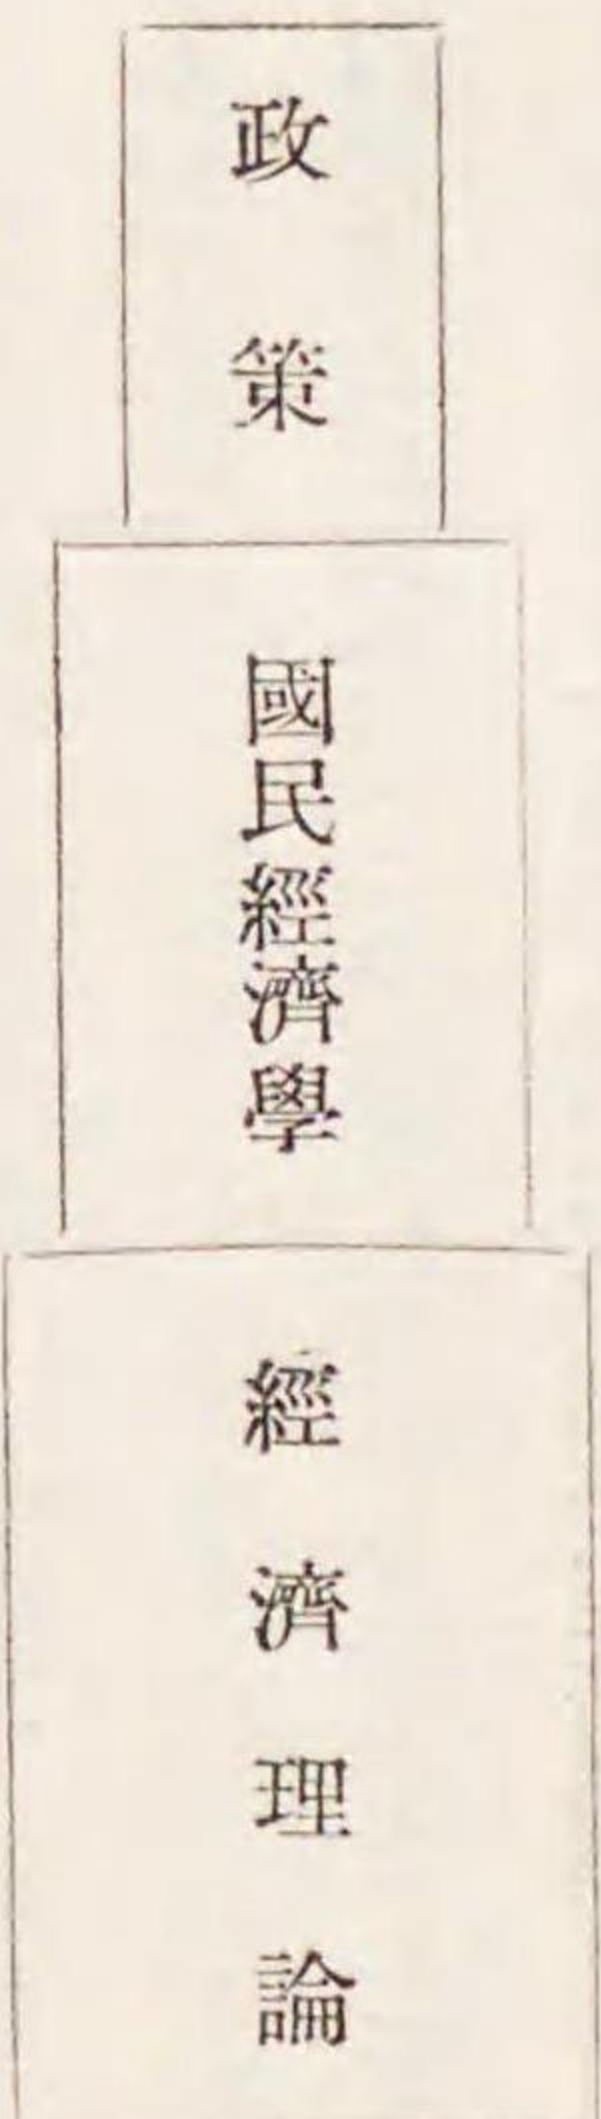 政策
國民經濟學
經濟理論